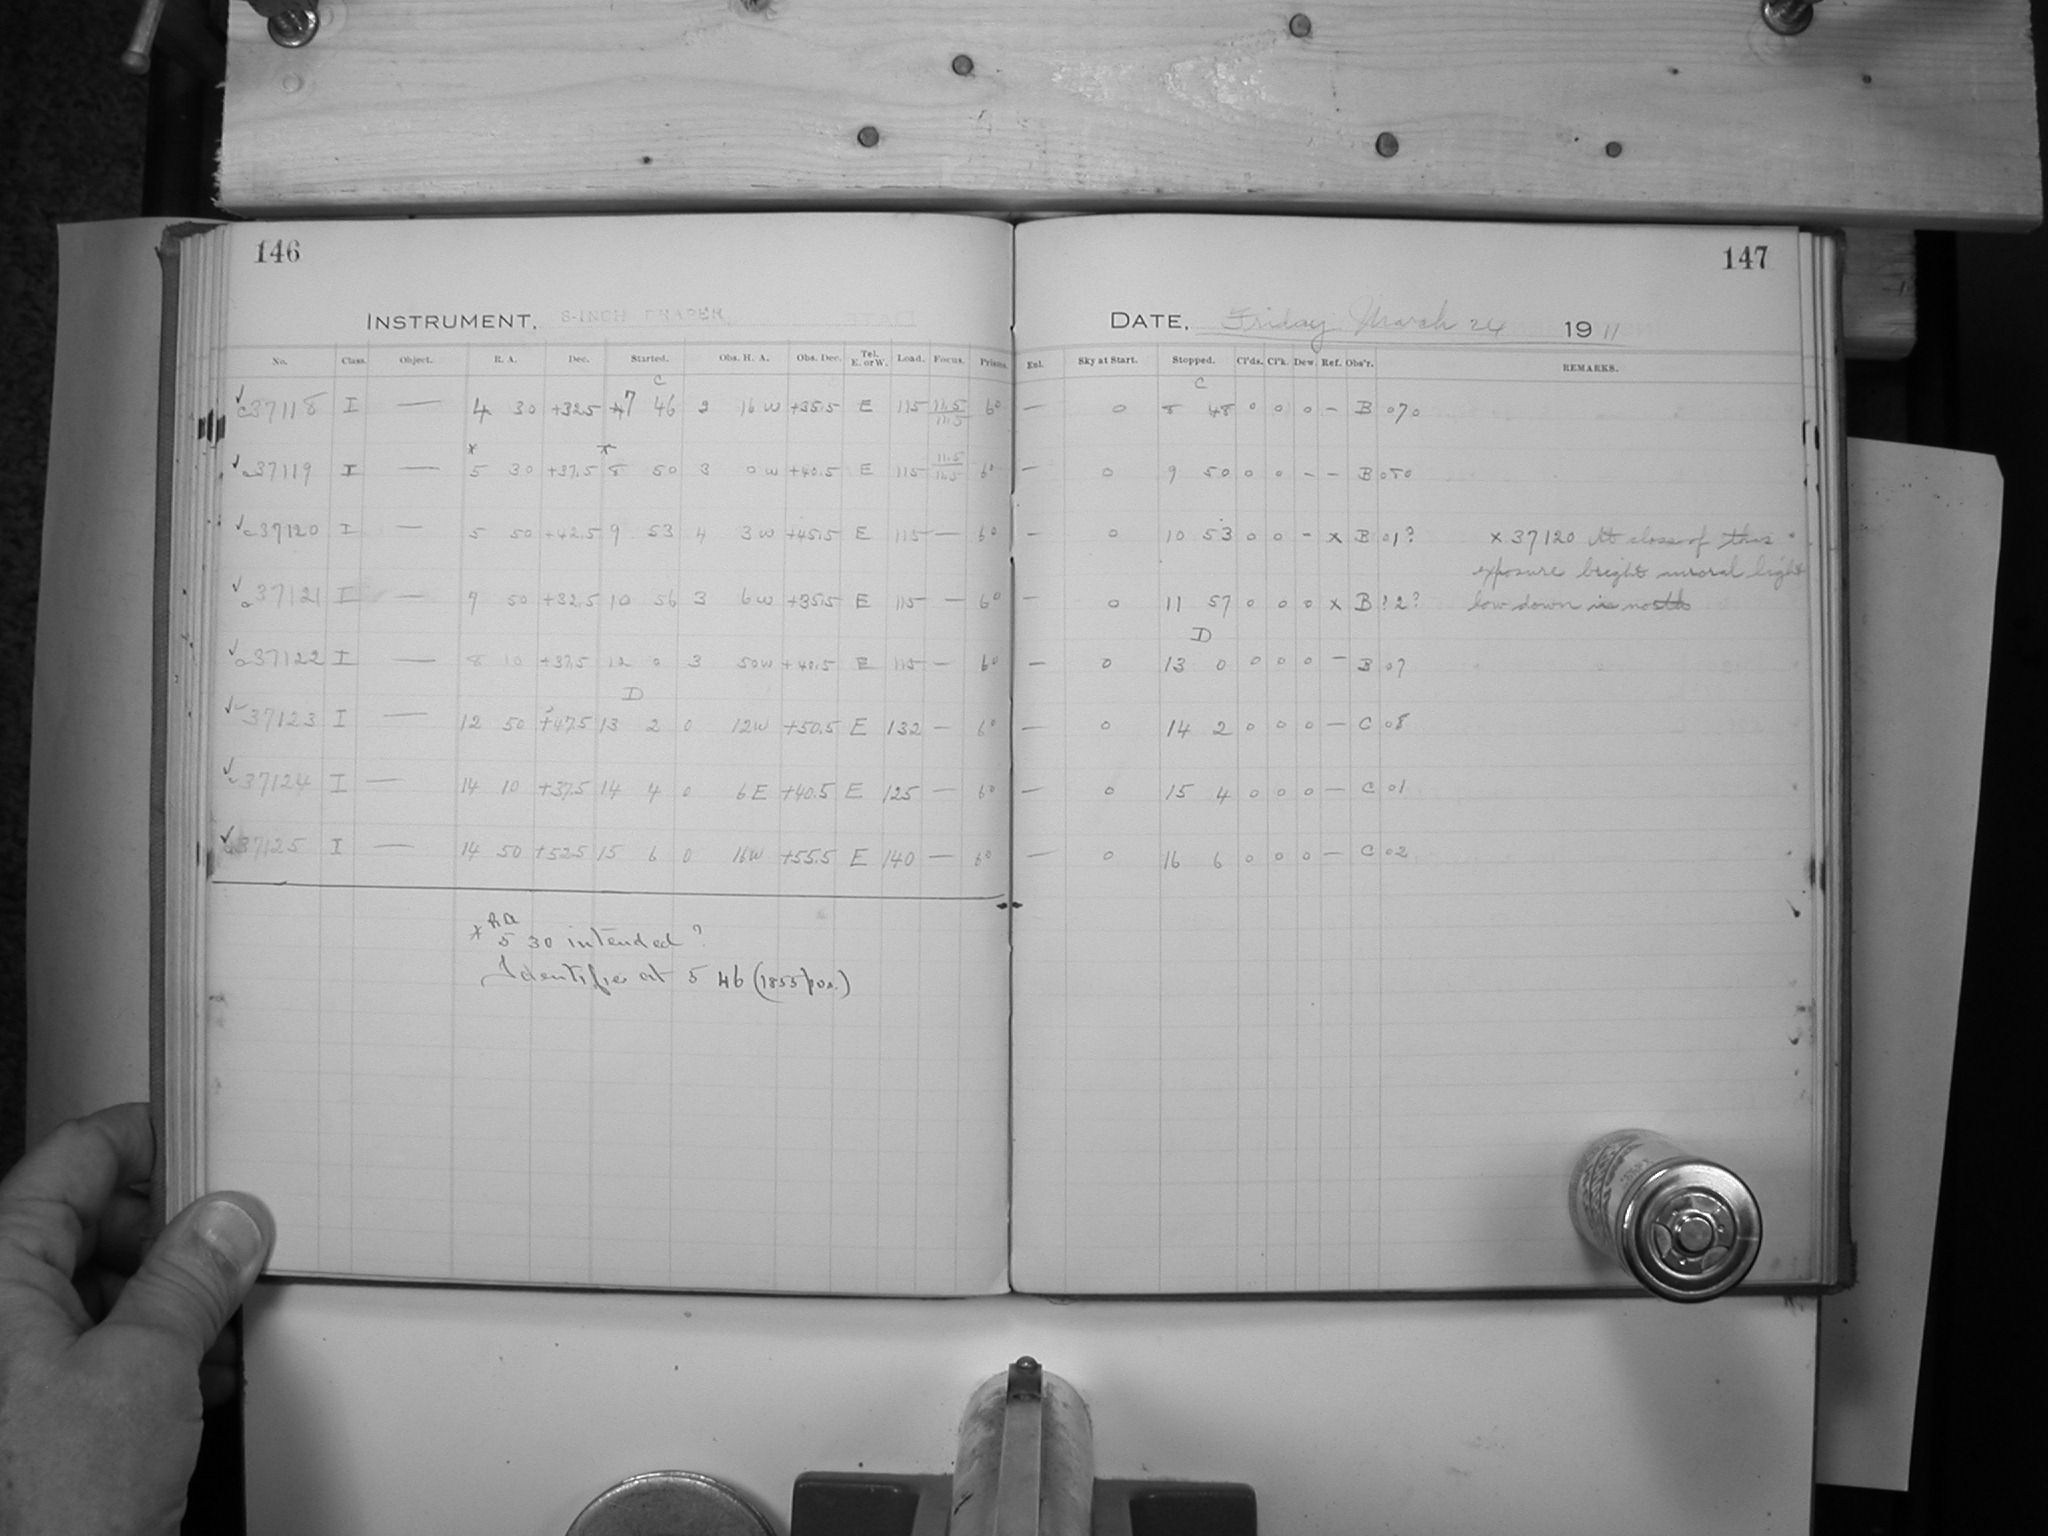 146
INSTRUMENT, 8-INCH DRAPER.
No. Class. Object. R. A. Dec. Started. Obs. H. A. Obs. Dec. Tel. E. or W. Load. Focus. Prisms.
C
c37118 I — 4 30 +32.5 7 46 2 16 W +35.5 E 115 11.5 11.5 60
x x
c37119 I — 5 30 +37.5 8 50 3 0 W +40.5 E 115 11.5 11.5 60
c37120 I — 5 50 +42.5 9 53 4 3 W +45.5 E 115 — 60
c37121 I — 7 50 +32.5 10 56 3 6 W +35.5 E 115 — 60
c37122 I — 8 10 +37.5 12 0 3 50 W +40.5 E 115 — 60
D
c37123 I — 12 50 +47.5 13 2 0 12 W +50.5 E 132 — 60
c37124 I — 14 10 +37.5 14 4 0 6 E +40.5 E 125 — 60
c37125 I — 14 50 +52.5 15 6 0 16 W +55.5 E 140 — 60
RA
* 5 30 intended?
Identifie at 5 46 (1855 pos.)
147
DATE, Friday March 24 1911
Enl. Sky at Start. Stopped. Cl'ds. Cl'k. Dew. Ref. Obs'r. REMARKS.
C
— 0 8 48 0 0 0 – B 070
— 0 9 50 0 0 – – B 050
— 0 10 53 0 0 – x B 01? x 37120 At close of this
exposure bright auroral light
— 0 11 57 0 0 0 x B ?2? low down in north
D
— 0 13 0 0 0 0 – B 07
— 0 14 2 0 0 0 — C 08
— 0 15 4 0 0 0 — C 01
— 0 16 6 0 0 0 — C 02